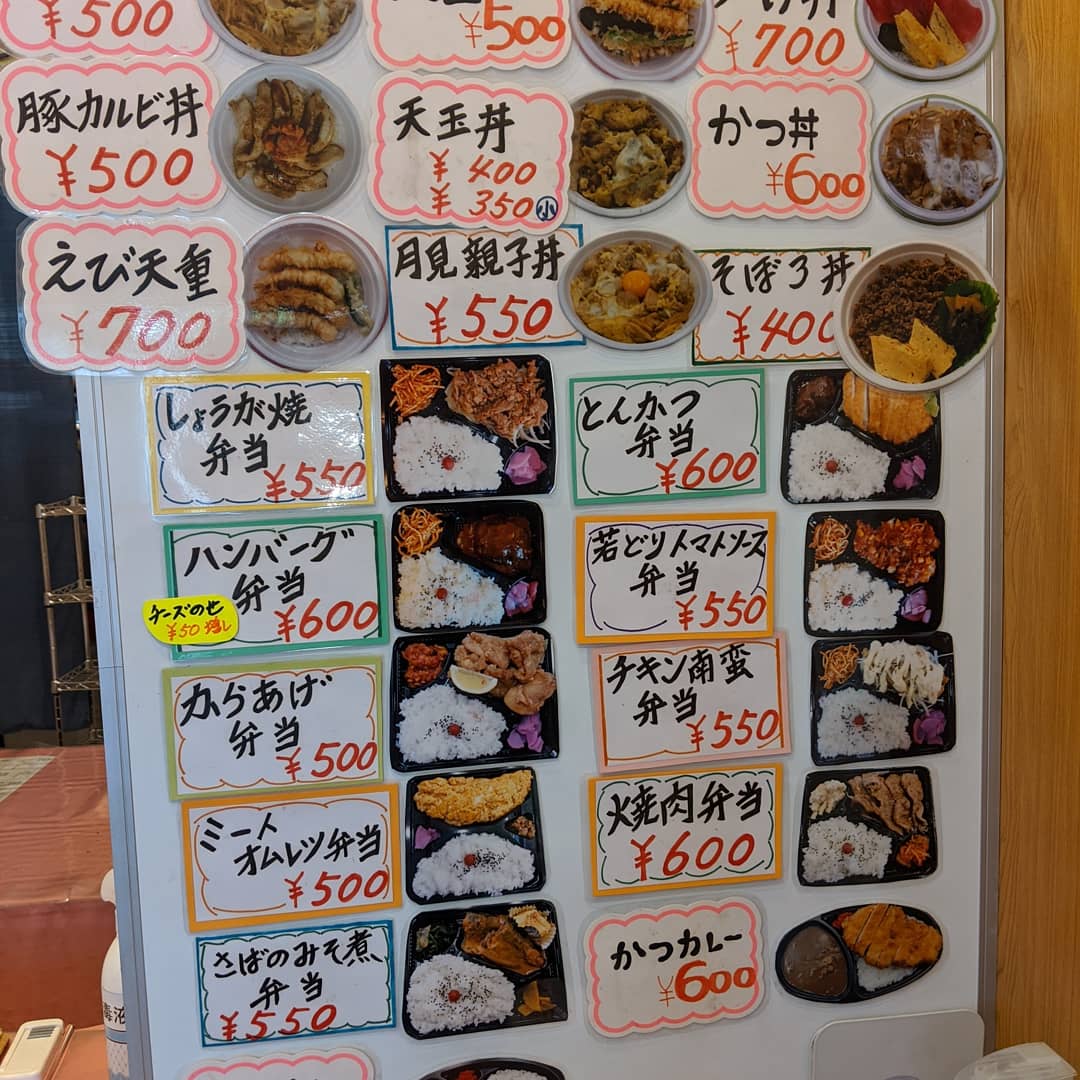 ¥500
¥500
¥700
豚カルビ丼
¥500
天玉丼
¥400
¥350小
かつ丼
¥600
えび天重
¥700
月見親子丼
¥550
そぼろ丼
¥400
しょうが焼
弁当
¥550
とんかつ
弁当
¥600
ハンバーグ
弁当
¥600
チーズのせ
¥50増し
若どりトマトソース
弁当
¥550
からあげ
弁当
¥500
チキン南蛮
弁当
¥550
ミート
オムレツ弁当
¥500
焼肉弁当
¥600
さばのみそ煮
弁当
¥550
かつカレー
¥600
毒液